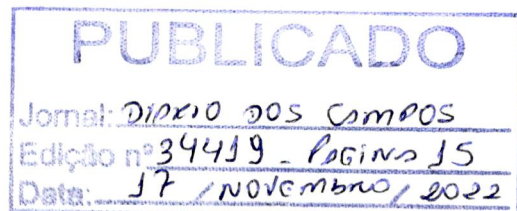 PUBLICADO
Jornal: DIÁRIO DOS CAMPOS
Edição nº 34419 - PAGINA 15
Data: 17 / NOVEMBRO / 2022